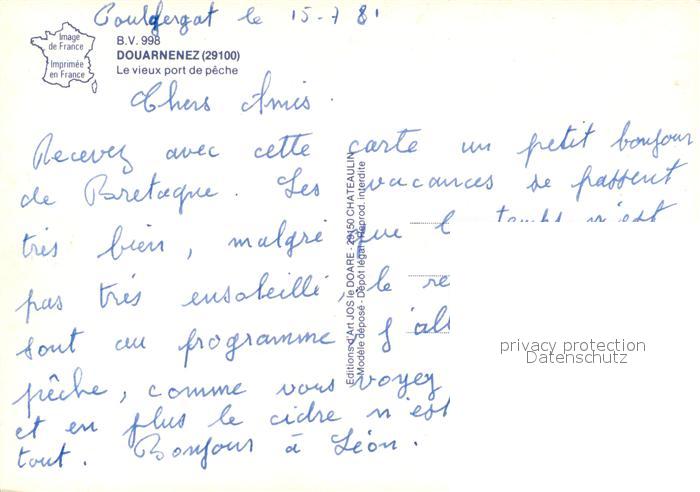 Poulfergat le 15-7 81
Image
de France
Imprimée
en France
B.V. 998
DOUARNENEZ (29100)
Le vieux port de pêche
Chers Amis.
Recevez avec cette carte un petit bonjour
de Bretagne. Les vacances se passent
très bien, malgré que l temps n'est
pas très ensoleillé, le re
sont au programme. J'all
pêche, comme vous voyez
et en plus le cidre n'est
tout. Bonjour à Léon.
Editions d'Art JOS le DOARE - 29150 CHATEAULIN
Modèle déposé - Dépôt légal - Reprod. interdite
privacy protection
Datenschutz